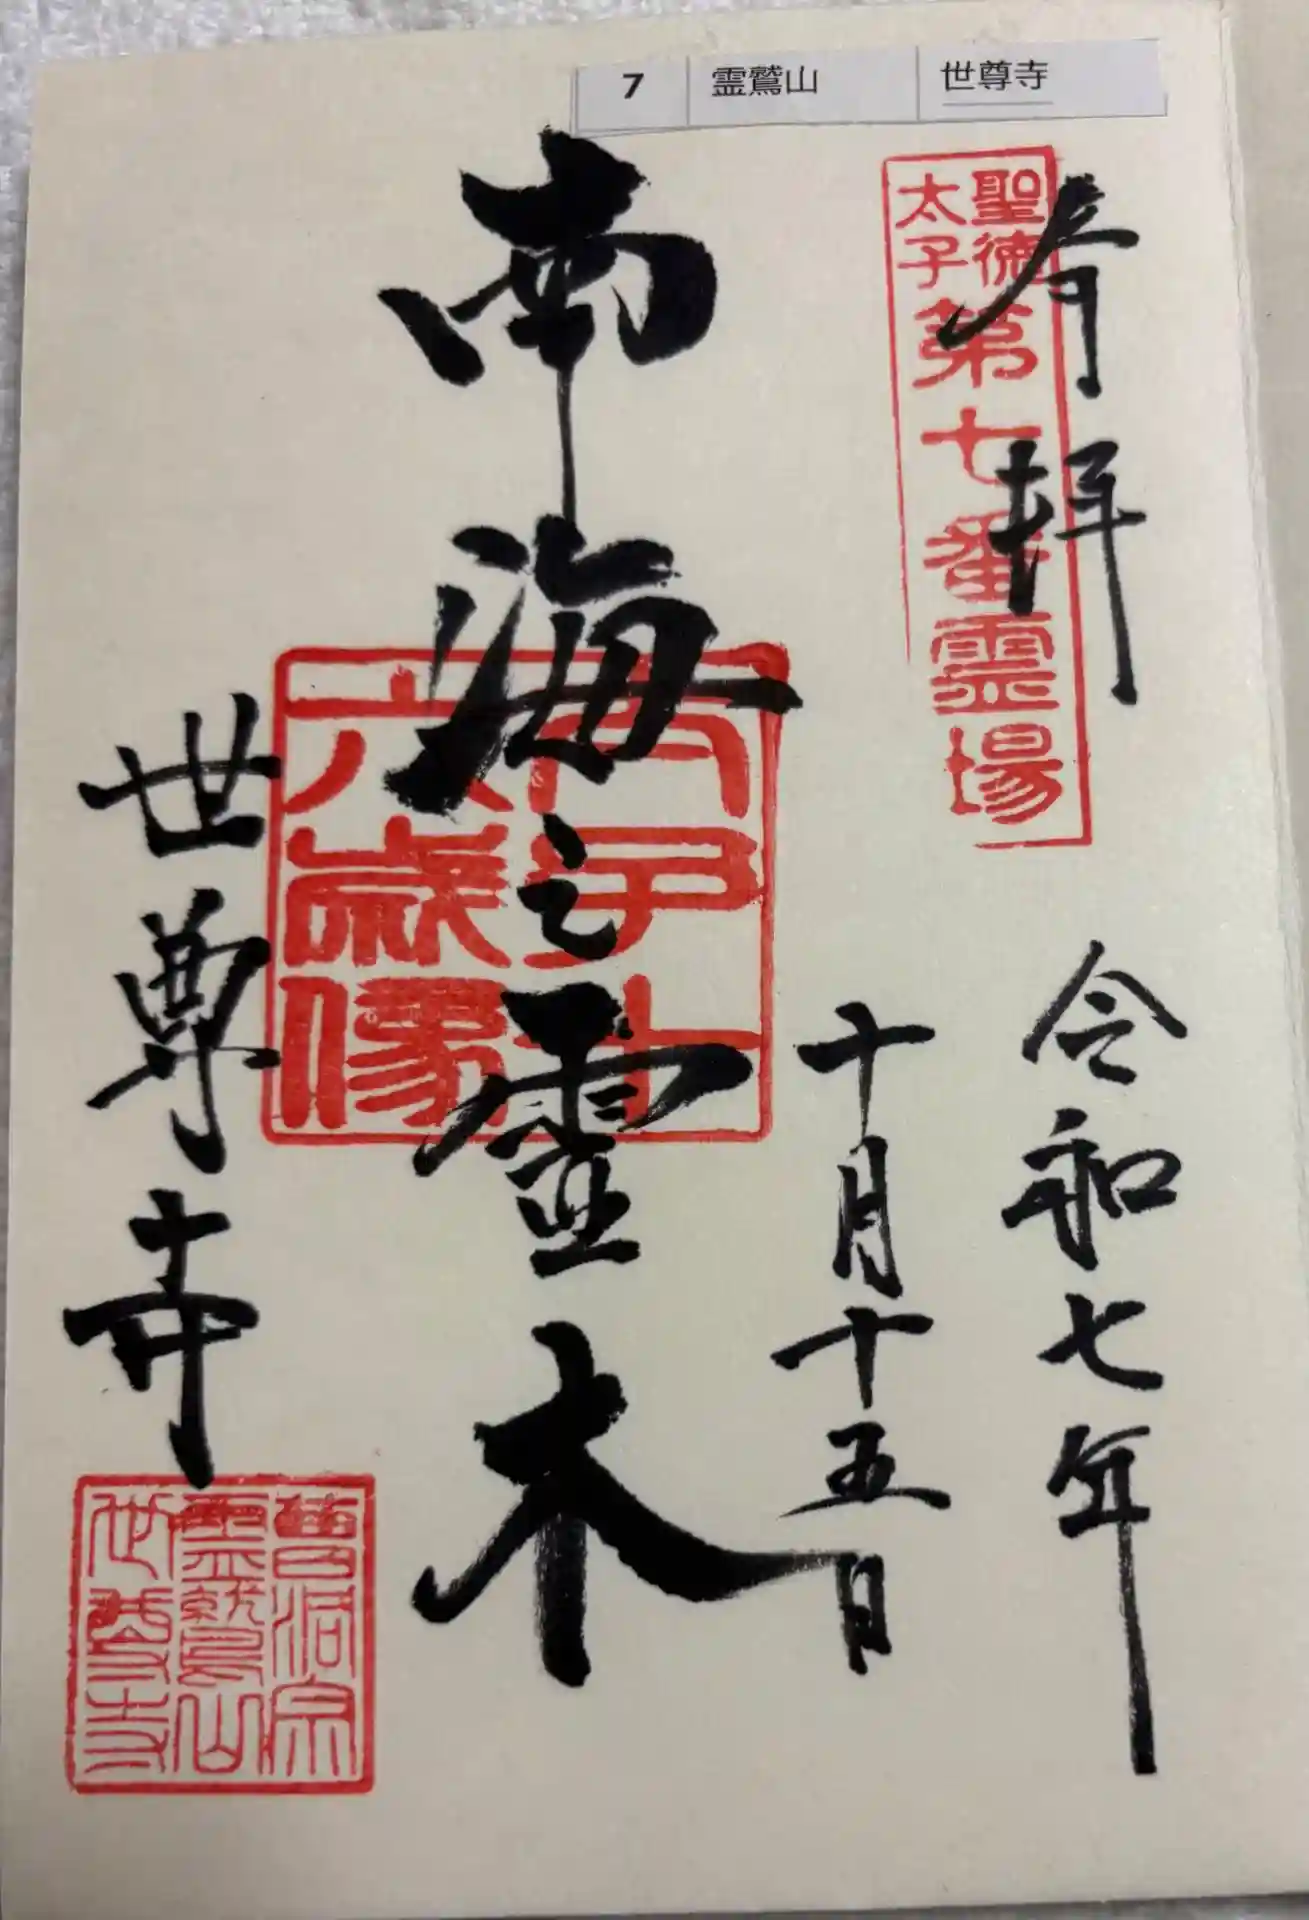 7 霊鷲山 世尊寺
聖徳
太子
第七番霊場
奉拝
令和七年
十月十五日
南海之霊木
太子十
六歳像
世尊寺
曹洞宗
霊鷲山
世尊寺